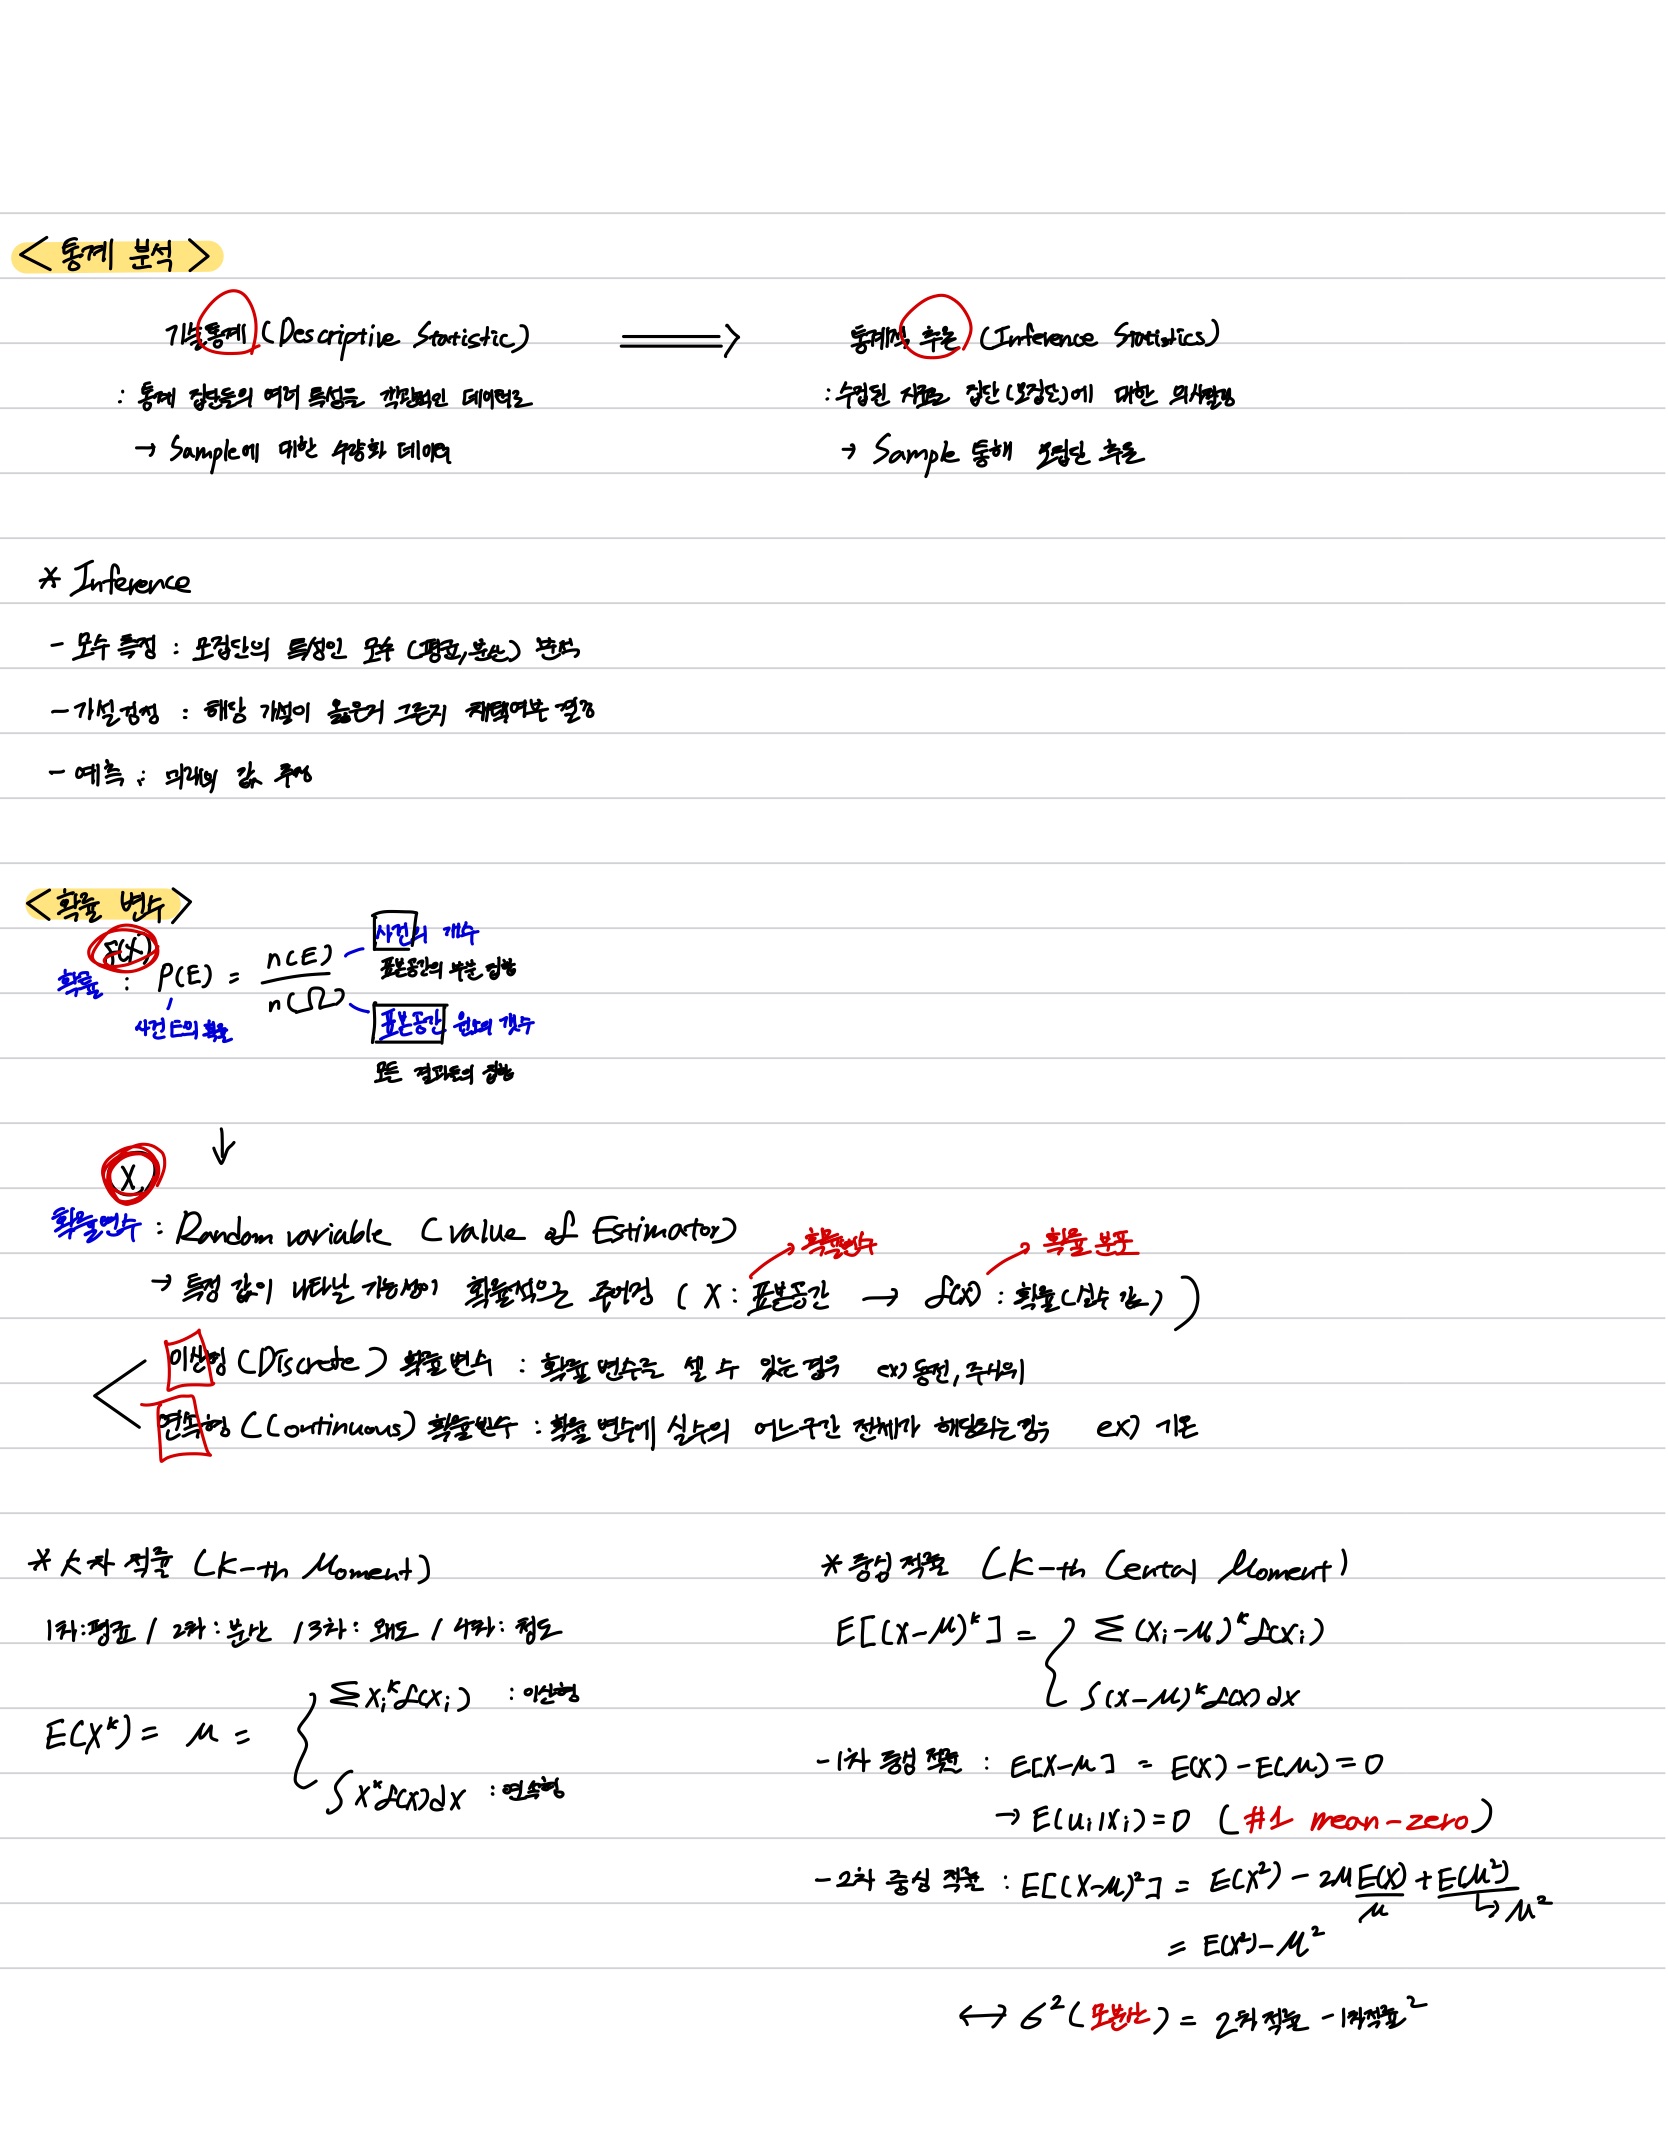 <통계 분석>
기술통계 (Descriptive Statistic) ⟹ 통계적 추론 (Inference Statistics)
: 통계 집단들의 여러 특성을 객관적인 데이터로
→ Sample에 대한 수량화 데이터
: 수집된 자료로 집단(모집단)에 대한 의사결정
→ Sample 통해 모집단 추론
* Inference
- 모수 특정 : 모집단의 특성인 모수 (평균, 분산) 분석
- 가설검정 : 해당 가설이 옳은지 그른지 채택여부 결정
- 예측 : 미래의 값 추정
<확률 변수>
f(x)
확률 : P(E) = n(E) / n(Ω)
사건 E의 확률
사건의 개수
표본공간의 부분 집합
표본공간 원소의 갯수
모든 결과들의 집합
↓
X
확률변수 : Random variable (value of Estimator)
확률변수 확률 분포
→ 특정 값이 나타날 가능성이 확률적으로 주어짐 ( X : 표본공간 → f(x) : 확률(실수 값) )
이산형 (Discrete) 확률 변수 : 확률 변수를 셀 수 있는 경우 ex) 동전, 주사위
연속형 (Continuous) 확률변수 : 확률 변수에 실수의 어느구간 전체가 해당되는경우 ex) 기온
* K차 적률 (K-th Moment)
1차:평균 / 2차 : 분산 / 3차 : 왜도 / 4차 : 첨도
E(X^k) = μ =
Σ x_i^k f(x_i) : 이산형
∫ x^k f(x) dx : 연속형
* 중심 적률 (K-th Cental Moment)
E[(X-μ)^k] = Σ (x_i-μ)^k f(x_i)
∫ (x-μ)^k f(x) dx
- 1차 중심 적률 : E[X-μ] = E(X) - E(μ) = 0
→ E(u_i|x_i) = 0 (#1 mean-zero)
- 2차 중심 적률 : E[(X-μ)²] = E(X²) - 2μE(X) + E(μ²)
μ ↳ μ²
= E(X²) - μ²
↔ σ² (모분산) = 2차 적률 - 1차적률²